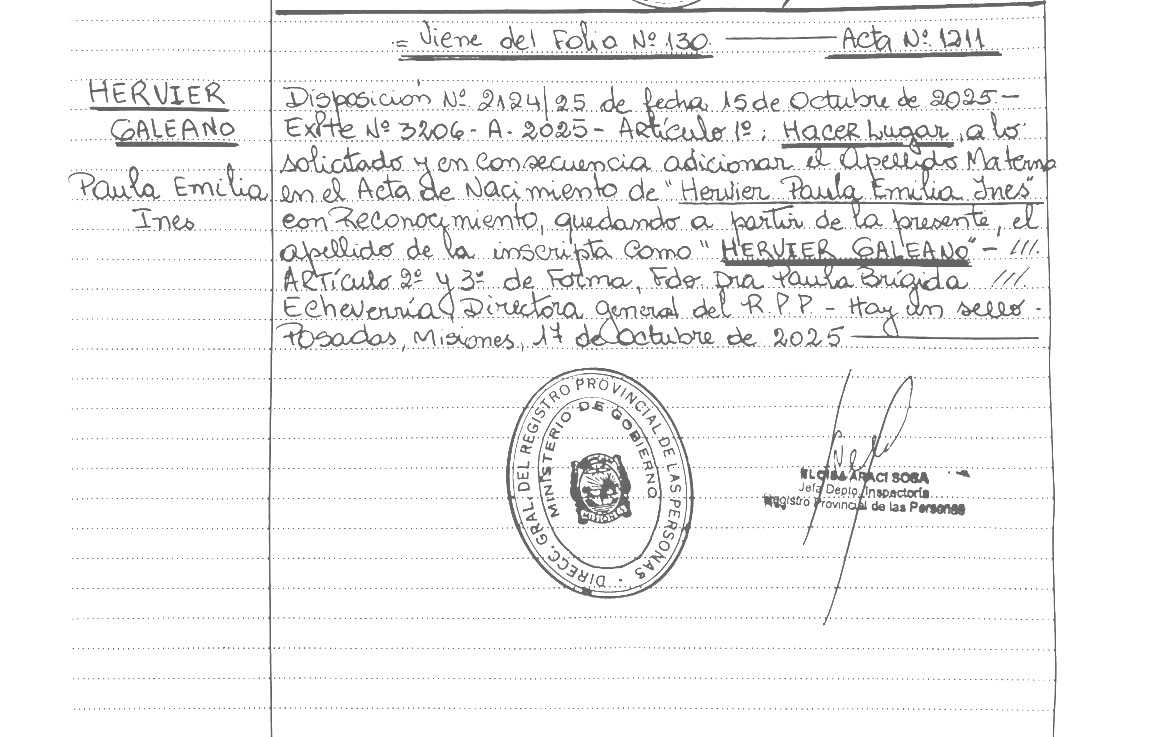 = Viene del Folio Nº 130. Acta Nº 1211
HERVIER
GALEANO
Paula Emilia
Ines
Disposición Nº 2124/25 de fecha 15 de Octubre de 2025 -
Expte Nº 3206 - A - 2025 - Artículo 1º: Hacer Lugar, a lo
solicitado y en consecuencia adicionar el Apellido Materno
en el Acta de Nacimiento de "Hervier Paula Emilia Ines"
con Reconocimiento, quedando a partir de la presente, el
apellido de la inscripta como "HERVIER GALEANO" - ///.
ARTículo 2º y 3º de Forma, Fdo Dra Paula Brígida ///.
Echeverría, Directora general del R.P.P - Hay un sello -
Posadas, Misiones, 17 de Octubre de 2025
DIRECC. GRAL. DEL REGISTRO PROVINCIAL DE LAS PERSONAS
MINISTERIO DE GOBIERNO
MISIONES
ELOISA ARACI SOSA
Jefa Depto. Inspectoría
Registro Provincial de las Personas